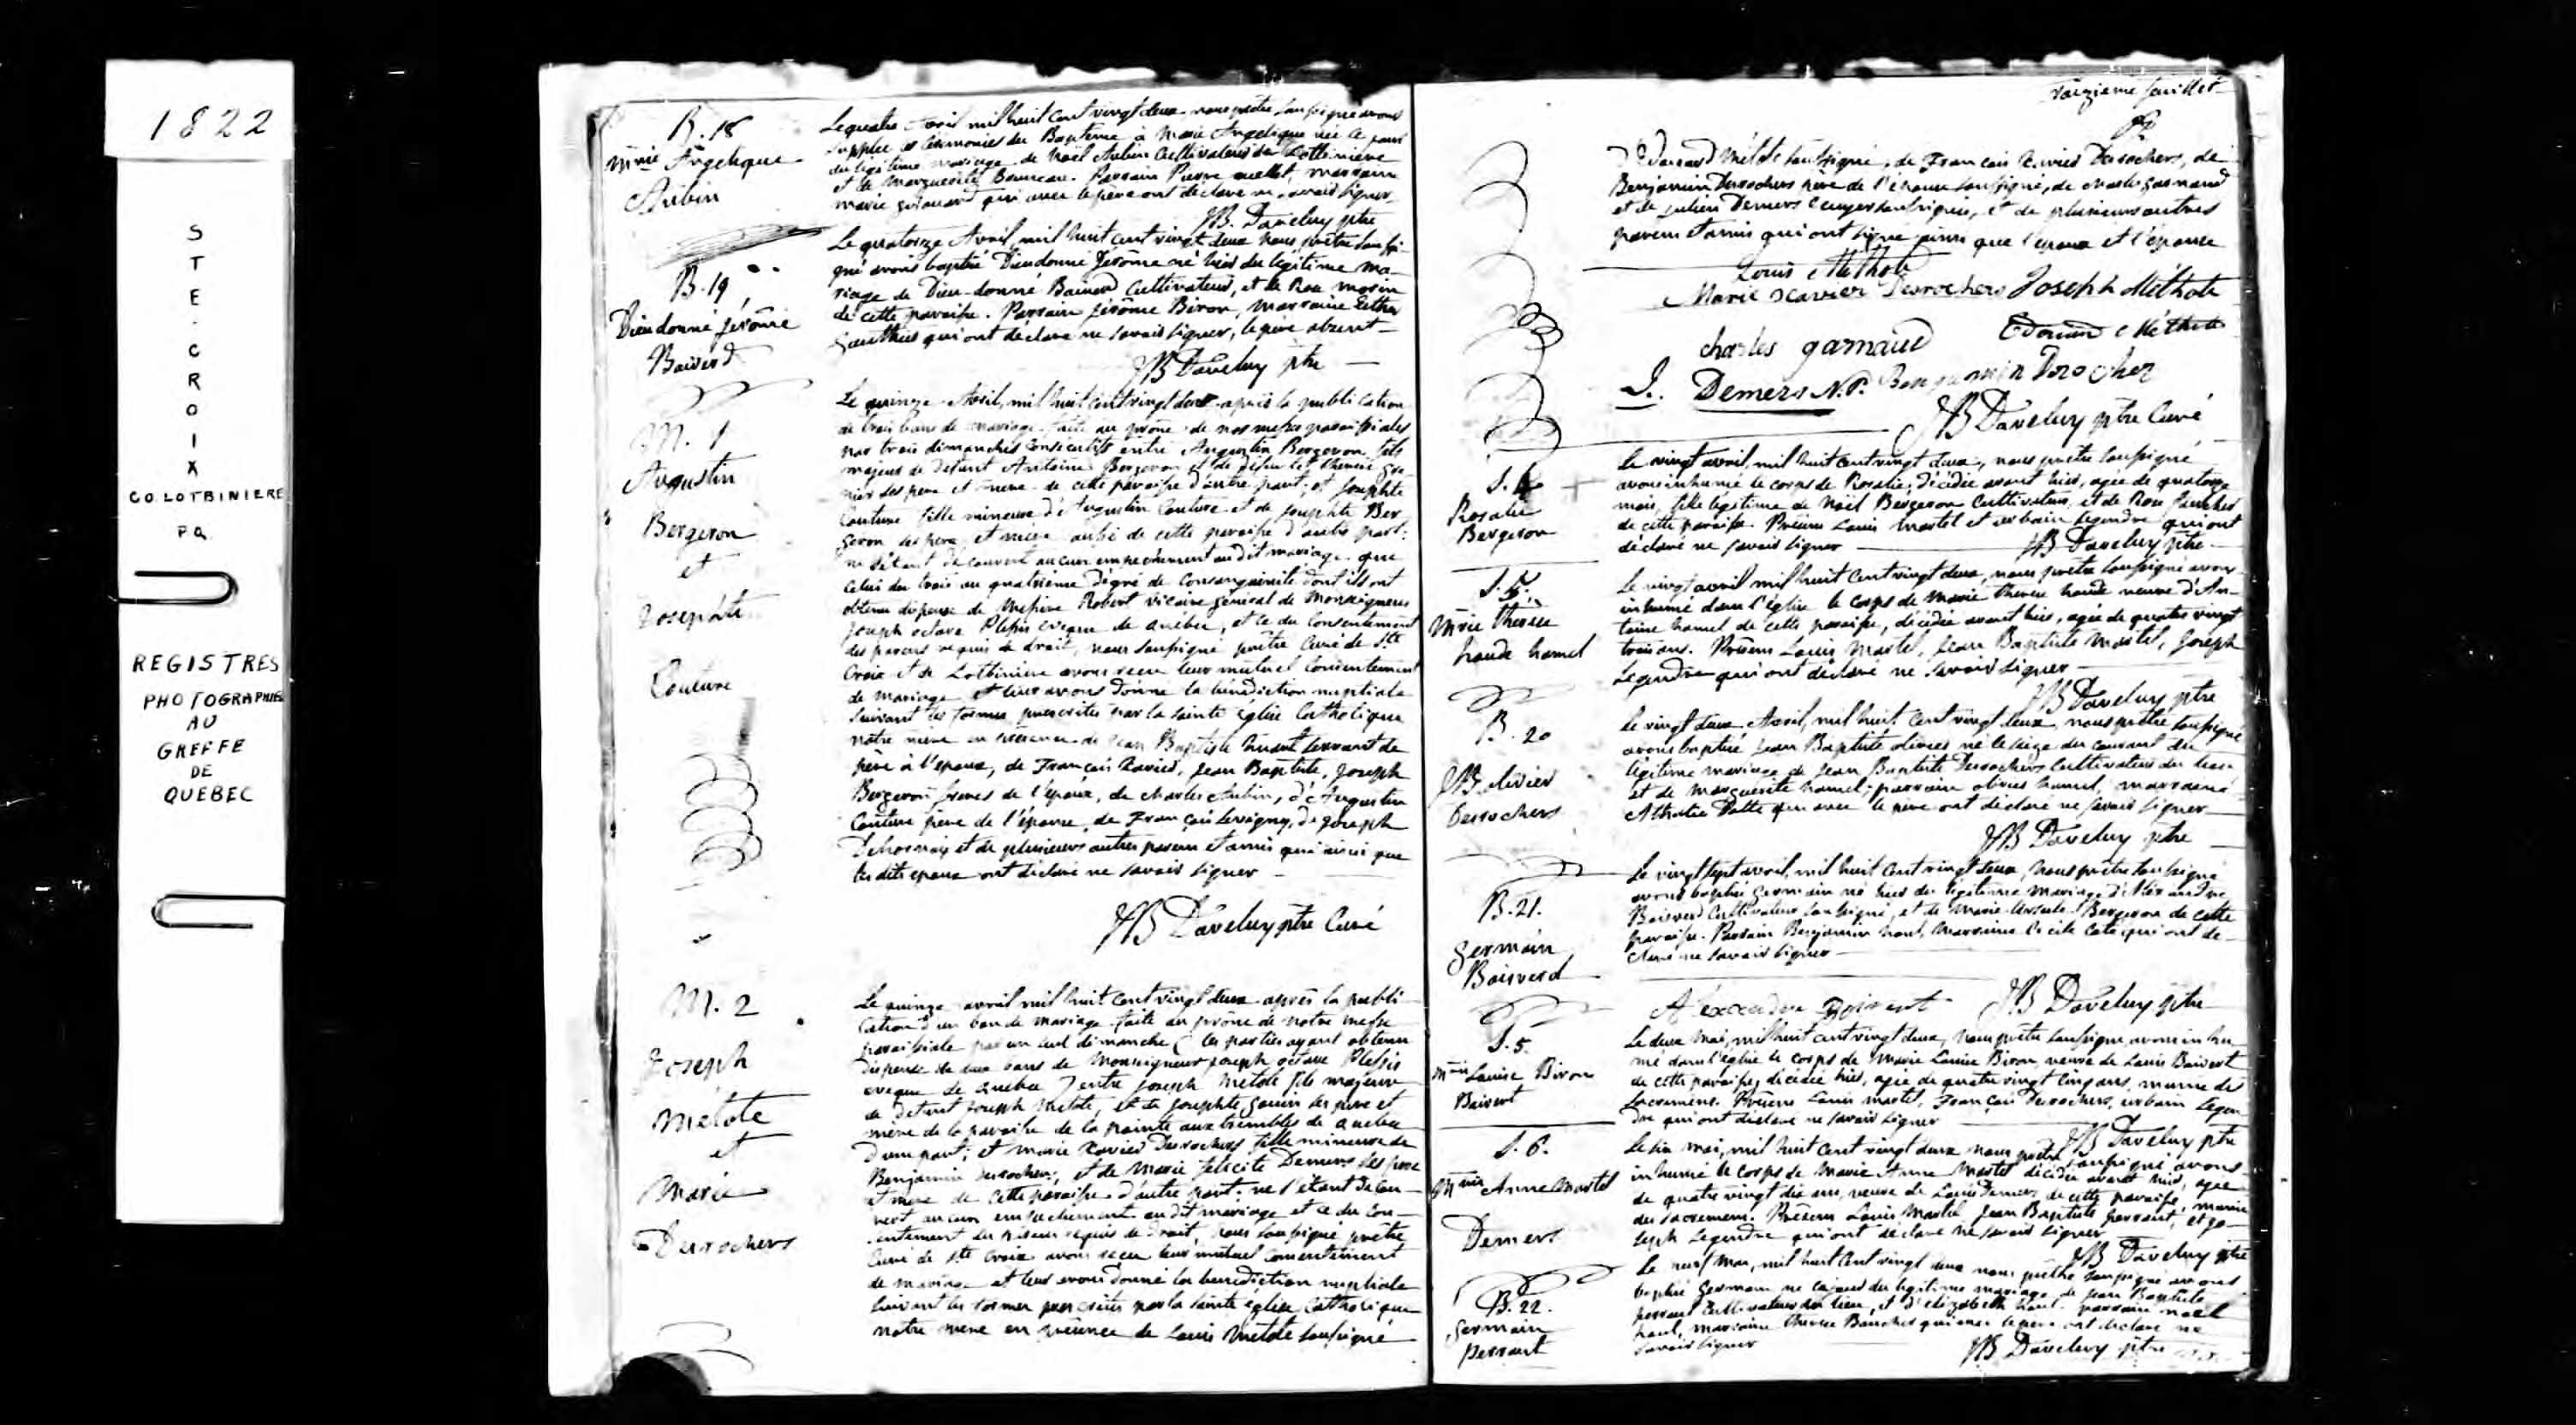 1822
STE-CROIX
CO. LOTBINIERE
P.Q.
REGISTRES
PHOTOGRAPHIES
AU
GREFFE
DE
QUEBEC
B. 18
Mrie Angelique
Aubin
Le quatre Avril mil huit cent vingt deux nous prêtre soussigné avons
supplée les cérémonies du Baptême à Marie Angelique née ce jour
du légitime mariage de Noël Aubin Cultivateur de Lotbiniere
et de Marguerite Parrain Pierre marraine
marie qui avec le père ont déclaré ne savoir signer
JB Daveluy ptre
B. 19
Dieudonné jerôme
Boisverd
Le quatorze Avril, mil huit cent vingt deux nous prêtre soussi-
gné avons baptisé Dieudonné Jerôme né hier du légitime ma-
riage de Dieu-donné Boisverd Cultivateur, et de morin
de cette paroisse. Parrain jérôme Biron, marraine Esther
Gauthier qui ont déclaré ne savoir signer, le père absent
JB Daveluy ptre
M. 1
Augustin
Bergeron
et
Josephte
Couture
Le quinze Avril, mil huit cent vingt deux après la publication
de trois bans de mariage faite au prône de nos messes paroissiales
par trois dimanches consécutifs entre Augustin Bergeron fils
majeur de defunt Antoine Bergeron et de défunte therese Gre
nier ses pere et mere de cette paroisse d'autre part; et josephte
Couture fille mineure d'Augustin Couture et de josephte Ber
geron ses pere et mère aussi de cette paroisse d'autre part;
ne s'étant découvert aucun empechement audit mariage que
celui du trois au quatrieme dégré de consanguinité dont ils ont
obtenu dispense de Messire Robert vicaire général de Monseigneur
joseph octave Plessis eveque de quebec, et ce du consentement
des parens requis de droit, nous soussigné prêtre Curé de Ste
Croix et de Lotbiniere avons recu leur mutuel consentement
de mariage et leur avons donné la bénédiction nuptiale
suivant les formes prescrites par la sainte Eglise Catholique
notre mère en présence de jean Baptiste huart servant de
père à l'epoux, de François Xavier, jean Baptiste, joseph
Bergeron freres de l'époux, de charles Aubin, d'Augustin
Couture père de l'épouse, de François Levigny, de joseph
et de plusieurs autres parens et amis qui ainsi que
les dits epoux ont déclaré ne savoir signer
JB Daveluy ptre Curé
M. 2
Joseph
Metote
et
Marie
Desrochers
Le quinze avril mil huit cent vingt deux après la publi-
cation d'un ban de mariage faite au prône de notre messe
paroissiale par un seul dimanche (les parties ayant obtenu
dispense de deux bans de Monseigneur joseph octave Plessis
eveque de quebec) entre joseph Metote fils majeur
de defunt joseph Metote, et de josephte Gouin ses pere et
mère de la paroisse de la pointe aux trembles de quebec
d'une part; et marie Xavier Desrochers fille mineure de
Benjamin Desrochers, et de marie felicite Demers ses pere
et mere de cette paroisse d'autre part; ne s'étant décou-
vert aucun empechement audit mariage et ce du con-
sentement des parens requis de droit, nous soussigné prêtre
Curé de Ste Croix avons recu leur mutuel consentement
de mariage et leur avons donné la benediction nuptiale
suivant les formes prescrites par la sainte église Catholique
notre mere en présence de Louis Metote soussigné
Seizieme feuillet
d'Edouard Métote soussigné, de François Xavier Desrochers, de
Benjamin Desrochers père de l'épouse soussigné, de charles garnaud
et de julien Demers ecuyer soussignés, et de plusieurs autres
parens et amis qui ont signé ainsi que l'epoux et l'épouse
Louis Methote
Marie Xcavier Desrochers Joseph Méthote
charles garnaud Edouard Méthote
J. Demers N.P. Benjamin Derocher
JB Daveluy ptre Curé
S. 4
Rosalie
Bergeron
Le vingt avril, mil huit cent vingt deux, nous prêtre soussigné
avons inhumé le corps de Rosalie, décédée avant hier, agée de quatorze
mois, fille légitime de Noël Bergeron cultivateur, et de
de cette paroisse. Présens Louis Martel et urbain Legendre qui ont
déclaré ne savoir signer JB Daveluy ptre
S. 5.
Mrie therese
houde hamel
Le vingt avril mil huit cent vingt deux, nous prêtre soussigné avons
inhumé dans l'église le corps de Marie therese houde veuve d'An-
toine hamel de cette paroisse, décédée avant hier, agée de quatre vingt
trois ans. Présens Louis Martel, jean Baptiste Martel, joseph
Legendre qui ont déclaré ne savoir signer
JB Daveluy ptre
B. 20
JB olivier
Desrochers
Le vingt deux Avril, mil huit cent vingt deux nous prêtre soussigné
avons baptisé jean Baptiste olivier né le seize du courant du
légitime mariage de jean Baptiste Desrochers Cultivateur du lieu
et de Marguerite hamel; parrain olivier hamel, marraine
qui avec le pere ont déclaré ne savoir signer
JB Daveluy ptre
B. 21.
germain
Boisverd
Le vingt sept avril, mil huit cent vingt deux, nous prêtre soussigné
avons baptisé germain né hier du légitime mariage d'Alexandre
Boisverd Cultivateur soussigné, et de Marie Bergeron de cette
paroisse. Parrain Benjamin marraine Cecile Coté qui ont dé-
claré ne savoir signer
Alexandre JB Daveluy ptre
S. 5.
Mrie Louise Biron
Boisvert
Le deux mai, mil huit cent vingt deux, nous prêtre soussigné avons inhu-
mé dans l'église le corps de Marie Louise Biron, veuve de Louis Boisvert
de cette paroisse, décédée hier, agée de quatre vingt cinq ans, munie des
sacremens. Présens Louis martel, François Desrochers, urbain Legen
dre qui ont déclaré ne savoir signer
JB Daveluy ptre
S. 6.
Mrie Anne Martel
Demers
Le six mai, mil huit cent vingt deux nous prêtre soussigné avons
inhumé le corps de Marie Anne Martel décédée avant hier, agée
de quatre vingt dix ans, veuve de Louis Demers de cette paroisse, munie
des sacremens. Présens Louis Martel jean Baptiste perrault, et jo-
seph Legendre qui ont déclaré ne savoir signer
JB Daveluy ptre
B. 22.
germain
perrault
Le neuf Mai, mil huit cent vingt deux nous prêtre soussigné avons
baptisé germain né ce jour du légitime mariage de jean Baptiste
perrault Cultivateur du lieu, et d'elizabeth parrain noël
marraine therese qui avec le père ont déclaré ne
savoir signer
JB Daveluy ptre